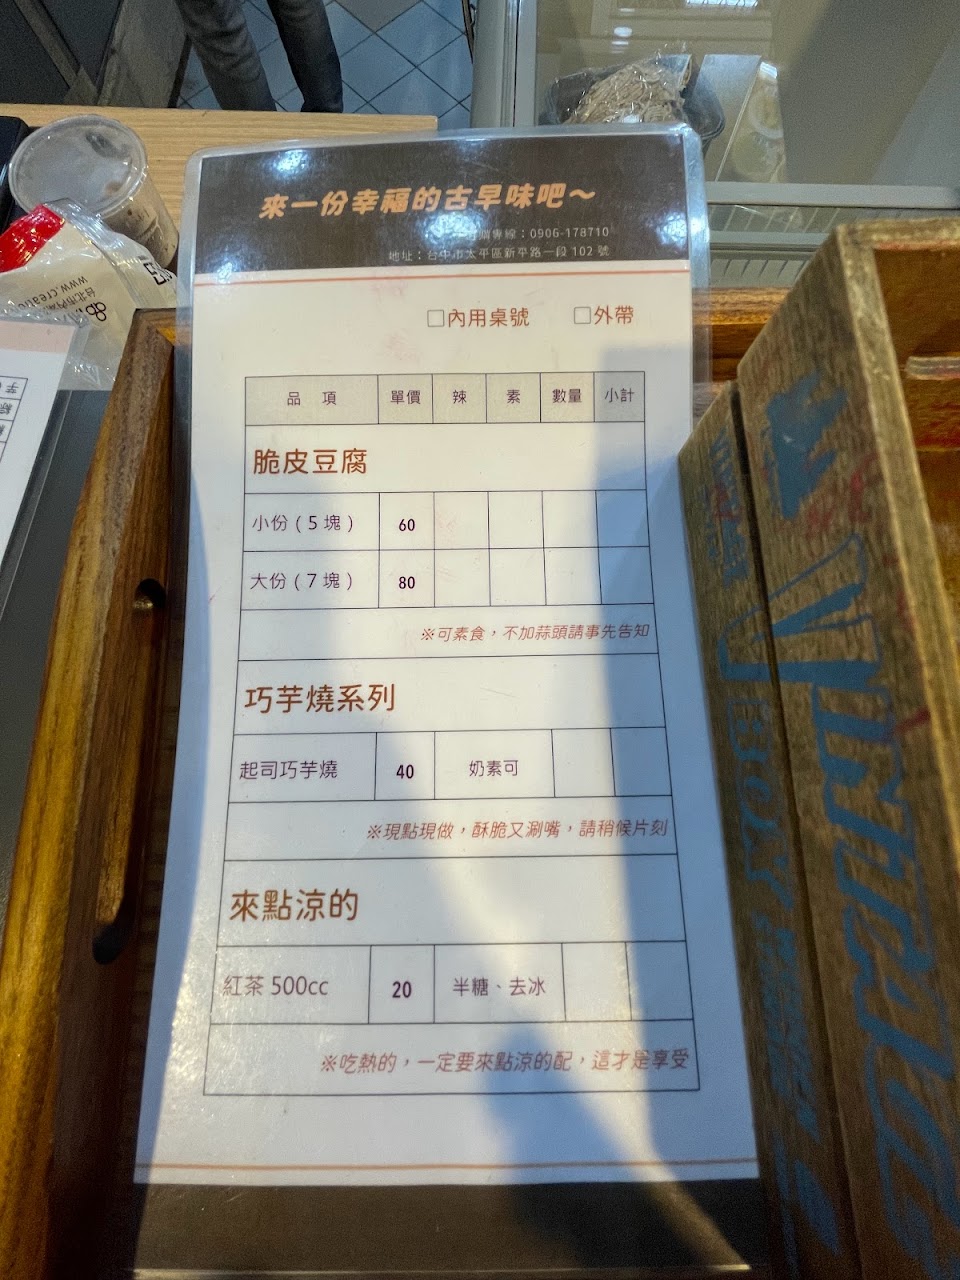 來一份幸福的古早味吧～
購專線：0906-178710
地址：台中市太平區新平路一段 102 號
□內用桌號 □外帶
品 項 單價 辣 素 數量 小計
脆皮豆腐
小份（5 塊） 60
大份（7 塊） 80
※可素食，不加蒜頭請事先告知
巧芋燒系列
起司巧芋燒 40 奶素可
※現點現做，酥脆又涮嘴，請稍候片刻
來點涼的
紅茶 500cc 20 半糖、去冰
※吃熱的，一定要來點涼的配，這才是享受